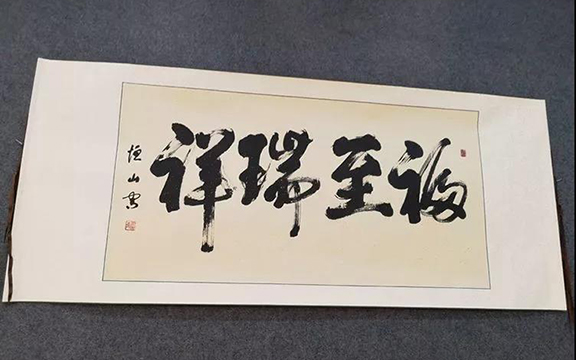 福至瑞祥
恒山書